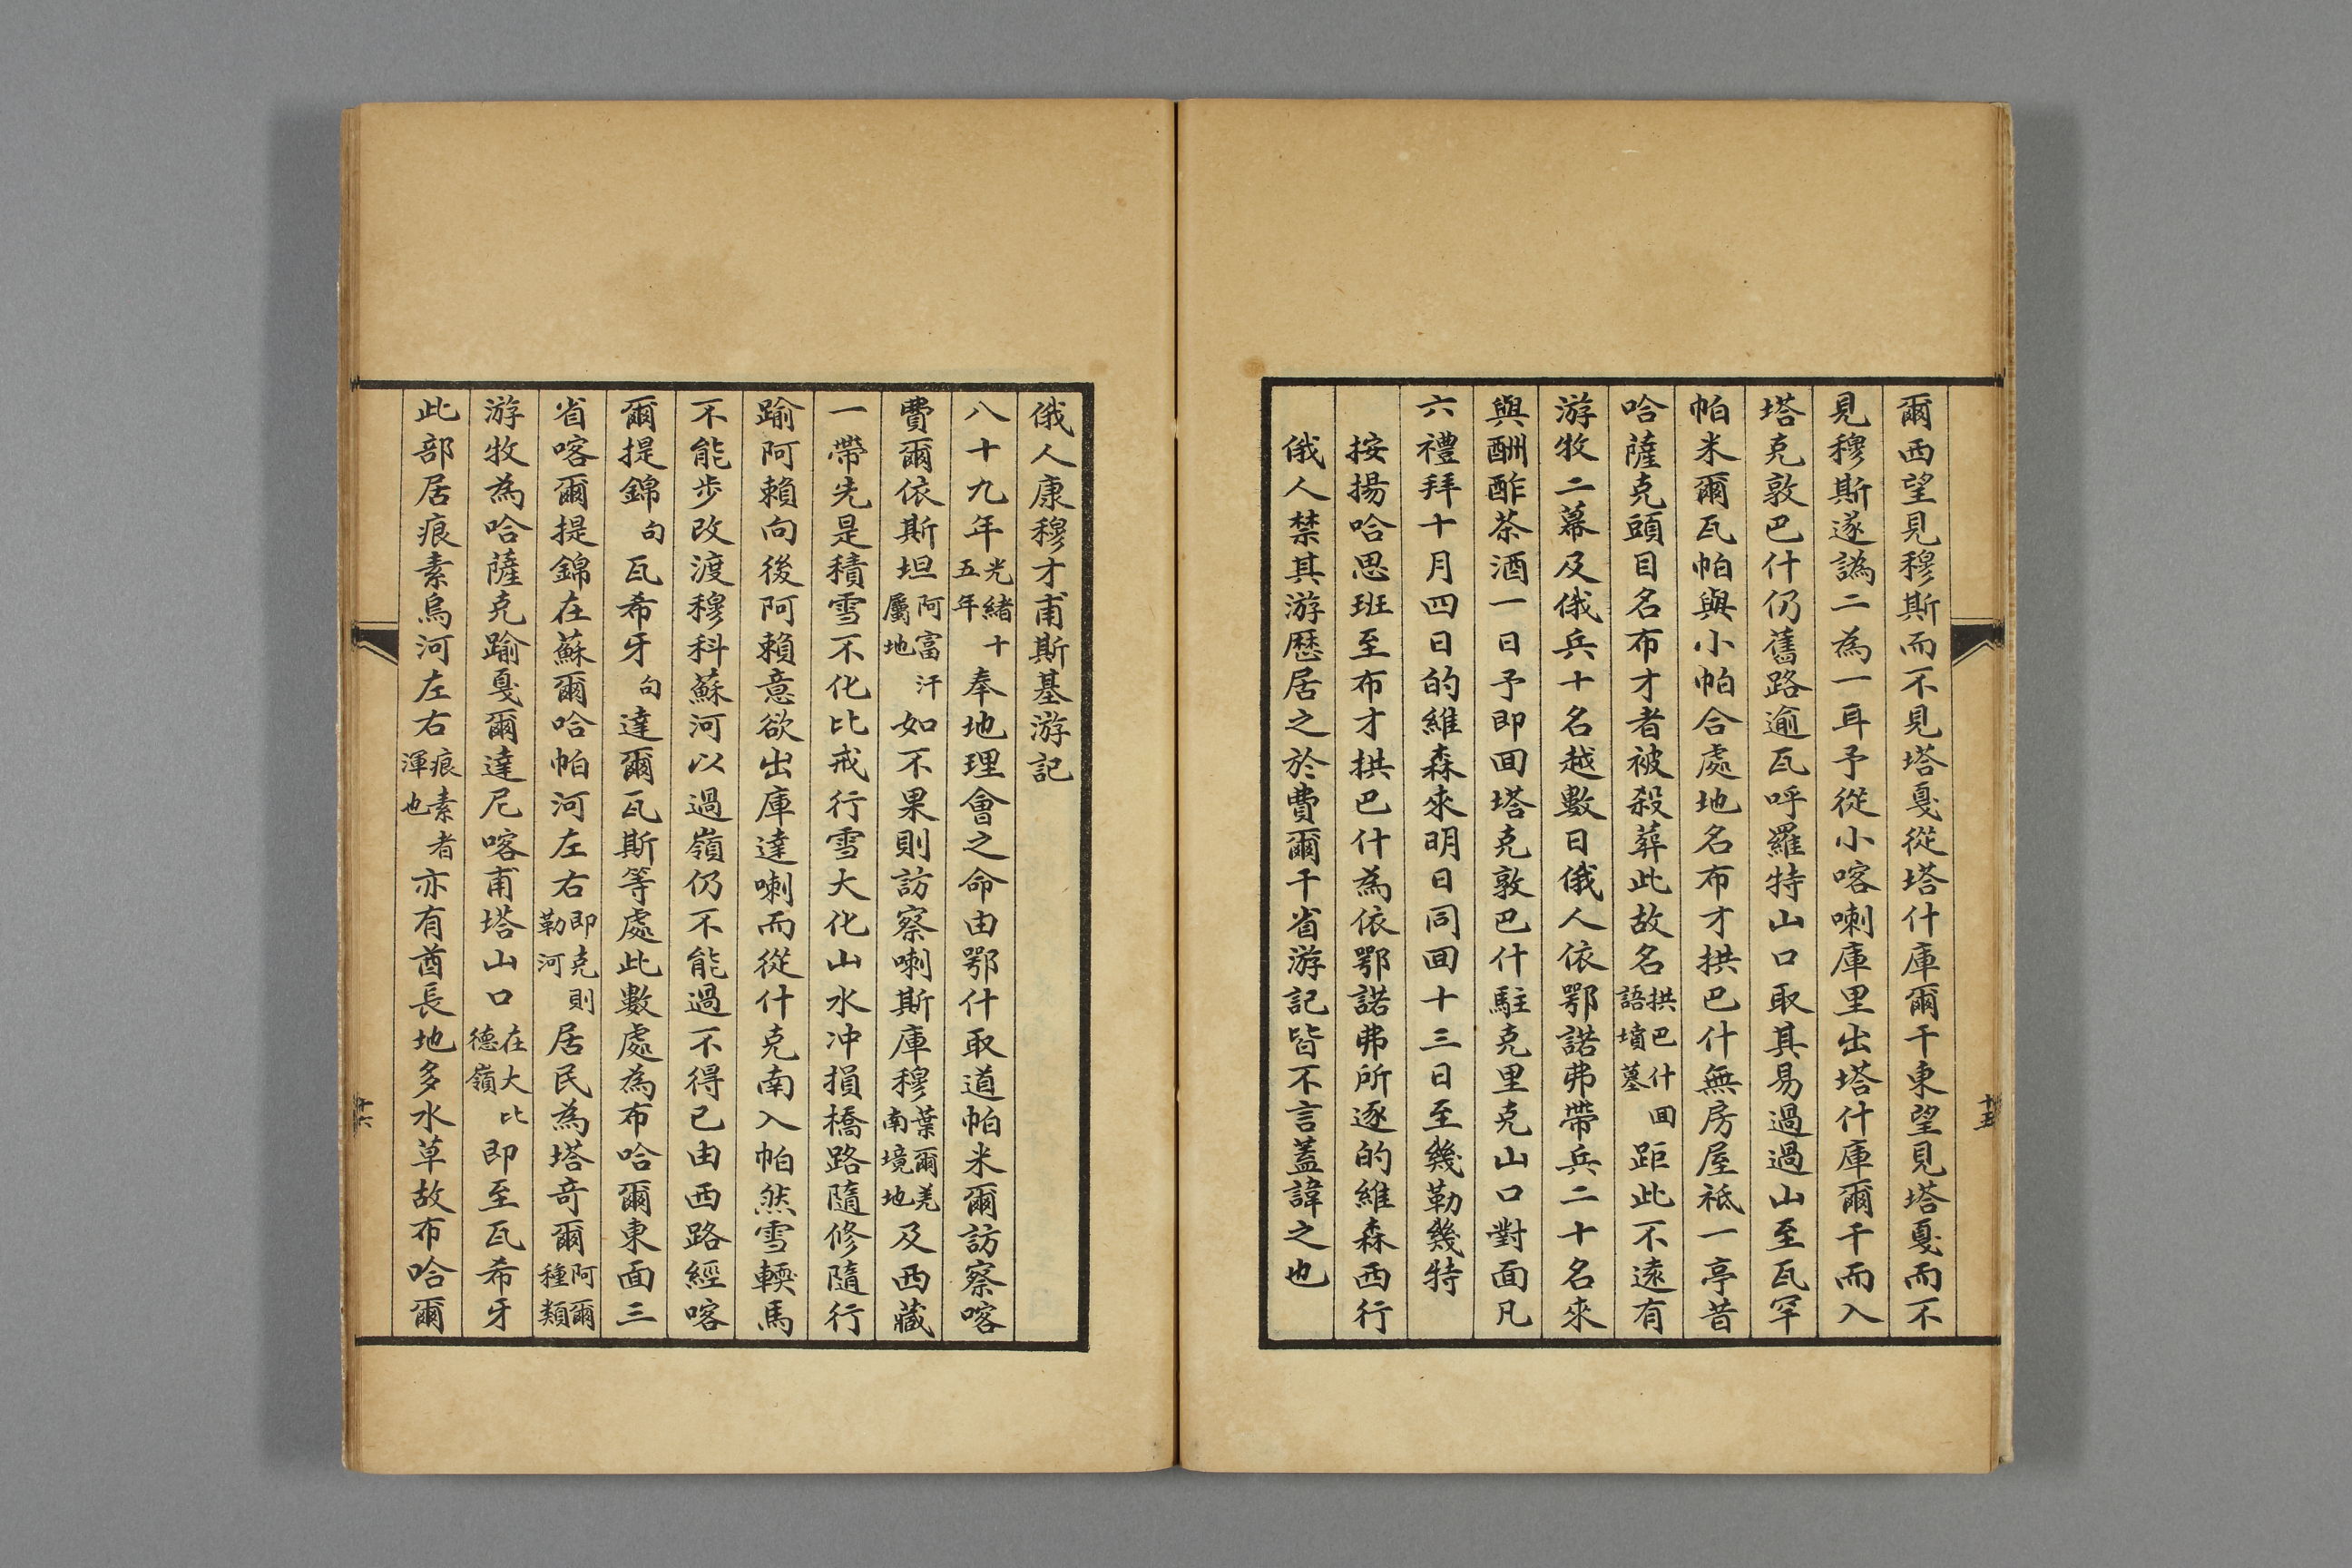 爾西望見穆斯而不見塔戛從塔什庫爾干東望見塔戛而不
見穆斯遂譌二為一耳予從小喀喇庫里出塔什庫爾干而入
塔克敦巴什仍舊路逾瓦呼羅特山口取其易過過山至瓦罕
帕米爾瓦帕與小帕合處地名布才拱巴什無房屋祗一亭昔
哈薩克頭目名布才者被殺葬此故名拱巴什回語墳墓距此不遠有
游牧二幕及俄兵十名越數日俄人依鄂諾弗帶兵二十名來
與酬酢茶酒一日予即回塔克敦巴什駐克里克山口對面凡
六禮拜十月四日的維森來明日同回十三日至幾勒幾特
按揚哈思班至布才拱巴什為依鄂諾弗所逐的維森西行
俄人禁其游歷居之於費爾干省游記皆不言蓋諱之也
十五
俄人康穆才甫斯基游記
八十九年光緒十五年奉地理會之命由鄂什取道帕米爾訪察喀
費爾依斯坦阿富汗屬地如不果則訪察喇斯庫穆葉爾羌南境地及西藏
一帶先是積雪不化比戒行雪大化山水冲損橋路隨修隨行
踰阿賴向後阿賴意欲出庫達喇而從什克南入帕然雪輭馬
不能步改渡穆科蘇河以過嶺仍不能過不得已由西路經喀
爾提錦句瓦希牙句達爾瓦斯等處此數處為布哈爾東面三
省喀爾提錦在蘇爾哈帕河左右即克則勒河居民為塔奇爾阿爾種類
游牧為哈薩克踰戛爾達尼喀甫塔山口在大比德嶺即至瓦希牙
此部居痕素烏河左右痕素者渾也亦有酋長地多水草故布哈爾
十六